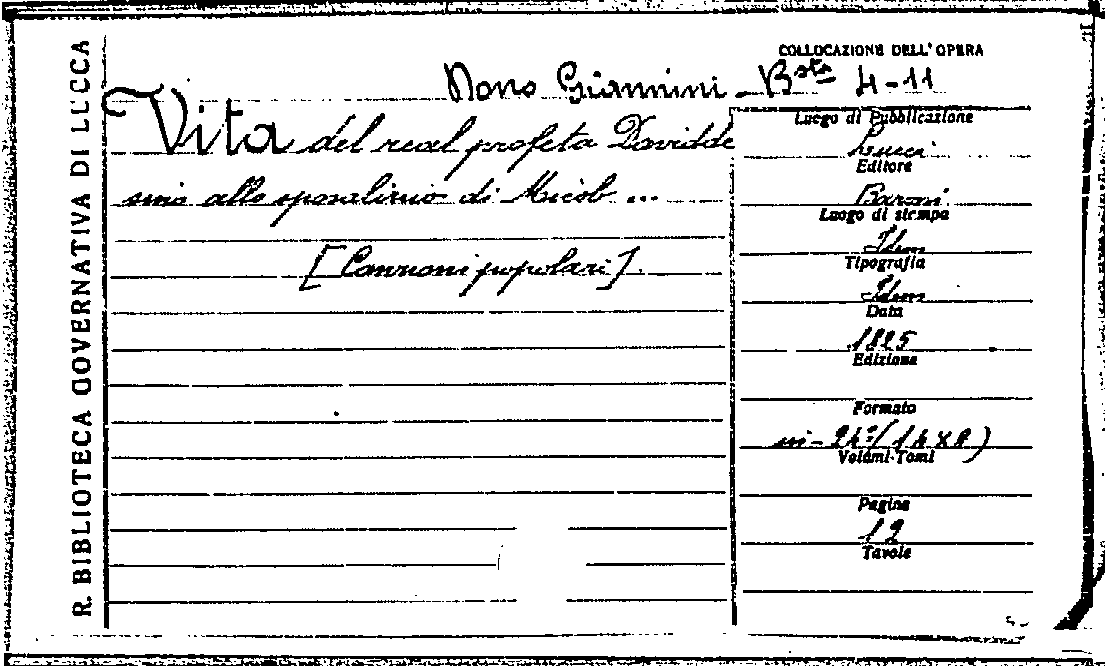 R. BIBLIOTECA GOVERNATIVA DI LUCCA
COLLOCAZIONE DELL'OPERA
Dono Giannini - Bsta 4-11
Vita del real profeta Davidde
sino allo sposalizio di Micol ...
[Canzoni popolari].
Luogo di Pubblicazione
Lucca
Editore
Baroni
Luogo di stampa
Idem
Tipografia
Idem
Data
1825
Edizione
Formato
in-24º (14X8)
Volumi-Tomi
Pagine
12
Tavole